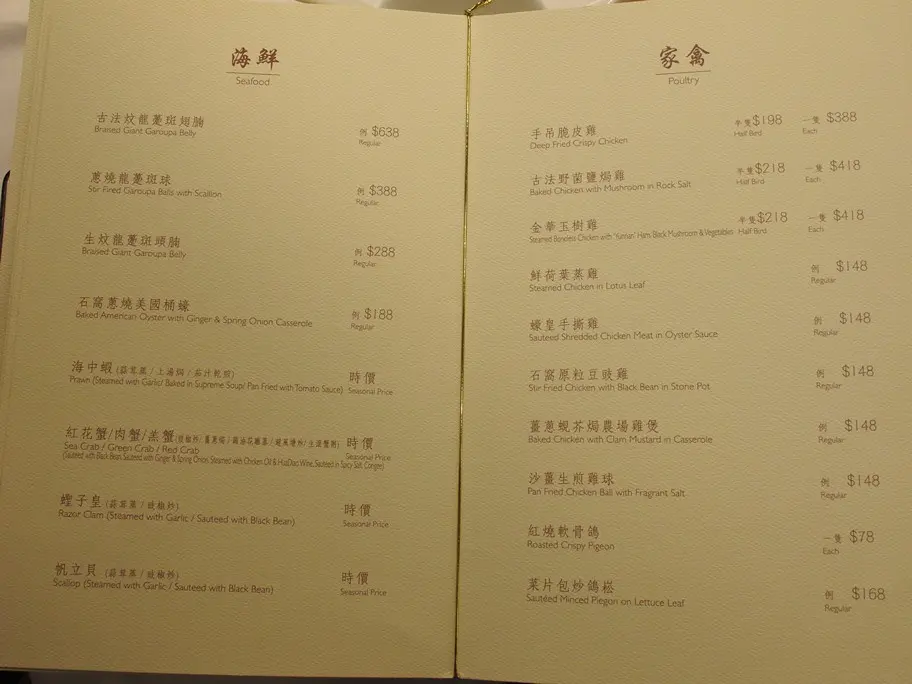 海鮮
Seafood
古法炆龍躉斑翅腩 例 $638
Braised Giant Garoupa Belly Regular
蔥燒龍躉斑球 例 $388
Stir Fired Garoupa Balls with Scallion Regular
生炆龍躉斑頭腩 例 $288
Braised Giant Garoupa Belly Regular
石窩蔥燒美國桶蠔 例 $188
Baked American Oyster with Ginger & Spring Onion Casserole Regular
海中蝦 (蒜茸蒸 / 上湯焗 / 茄汁乾煎) 時價
Prawn (Steamed with Garlic/ Baked in Supreme Soup/ Pan Fried with Tomato Sauce) Seasonal Price
紅花蟹/肉蟹/羔蟹 時價
Sea Crab / Green Crab / Red Crab Seasonal Price
(Sauteed with Black Bean, Sauteed with Ginger & Spring Onion, Steamed with Chicken Oil & HuaDiao Wine, Sauteed in Spicy Salt, Congee)
蟶子皇 (蒜茸蒸 / 豉椒炒) 時價
Razor Clam (Steamed with Garlic / Sauteed with Black Bean) Seasonal Price
帆立貝 (蒜茸蒸 / 豉椒炒) 時價
Scallop (Steamed with Garlic / Sauteed with Black Bean) Seasonal Price
家禽
Poultry
手吊脆皮雞 半隻 $198 一隻 $388
Deep Fried Crispy Chicken Half Bird Each
古法野菌鹽焗雞 半隻 $218 一隻 $418
Baked Chicken with Mushroom in Rock Salt Half Bird Each
金華玉樹雞 半隻 $218 一隻 $418
Steamed Boneless Chicken with "Yunnan" Ham, Black Mushroom & Vegetables Half Bird Each
鮮荷葉蒸雞 例 $148
Steamed Chicken in Lotus Leaf Regular
蠔皇手撕雞 例 $148
Sauteed Shredded Chicken Meat in Oyster Sauce Regular
石窩原粒豆豉雞 例 $148
Stir Fried Chicken with Black Bean in Stone Pot Regular
薑蔥蜆芥焗農場雞煲 例 $148
Baked Chicken with Clam Mustard in Casserole Regular
沙薑生煎雞球 例 $148
Pan Fried Chicken Ball with Fragrant Salt Regular
紅燒軟骨鴿 一隻 $78
Roasted Crispy Pigeon Each
菜片包炒鴿崧 例 $168
Sautéed Minced Piegon on Lettuce Leaf Regular